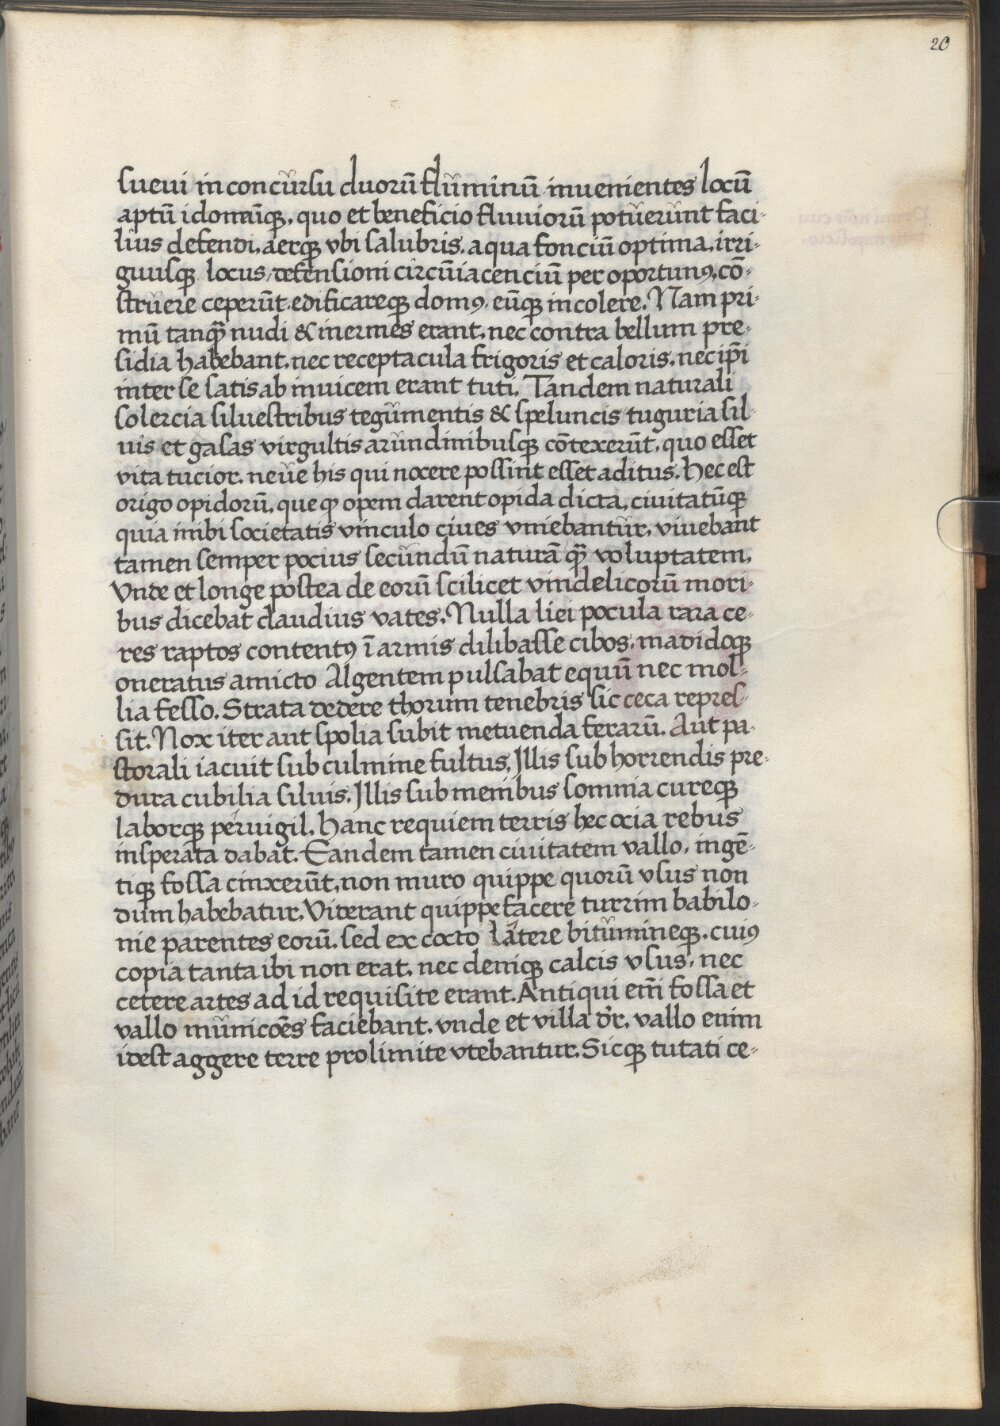 20
suevi in concursu duorū fluminū invenientes locū
aptū idoneūq3, quo et beneficio fluviorū potuerunt faci-
lius defendi, aerq3 vbi salubris, aqua fonciū optima, irri-
guusq3 locus, defensioni circūiacenciū per oportun9, cō-
struere ceperūt, edificareq3 dom9, eūq3 incolere. Nam pri-
mū tanq̄3 nudi & inermes erant, nec contra bellum pre-
sidia habebant, nec receptacula frigoris et caloris, nec ip̄i
inter se satis ab invicem erant tuti. Tandem naturali
solercia silvestribus tegumentis & speluncis tuguria sil-
uis et gasas virgultis arundinibusq3 cōtexerūt, quo esset
vita tucior, neue his qui nocere possint esset aditus. Hec est
origo opidorū, que q opem darent opida dicta, ciuitatūq3
quia inibi societatis vinculo ciues vniebantur, viuebant
tamen semper pocius secundū naturā q̄3 voluptatem,
Vnde et longe postea de eorū scilicet vindelicorū mori-
bus dicebat claudius vates. Nulla liei pocula rara ce-
res raptos content9 ī armis dilibasse cibos, madidoq3
oneratus amicto Algentem pulsabat equū nec mol-
lia fesso. Strata dedere thorum tenebris sic ceca repres-
sit. Nox iter aut spolia subit metuenda ferarū. Aut pa-
storali iacuit sub culmine fultus, Illis sub horrendis pre-
dura cubilia siluis. Illis sub menibus somnia cureq3
laborq3 pervigil. Hanc requiem terris hec ocia rebus
insperata dabat. Eandem tamen ciuitatem vallo, ingē-
tiq3 fossa cinxerūt, non muro quippe quorū vsus non
dum habebatur, Viderant quippe facere turrim babilo-
nie parentes eorū. sed ex cocto latere bitumineq3, cui9
copia tanta ibi non erat, nec deniq3 calcis vsus, nec
cetere artes ad id requisite erant. Antiqui em̄ fossa et
vallo municōes faciebant, vnde et villa dr̄, vallo enim
idest aggere terre pro limite vtebantur. Sicq3 tutati ce-